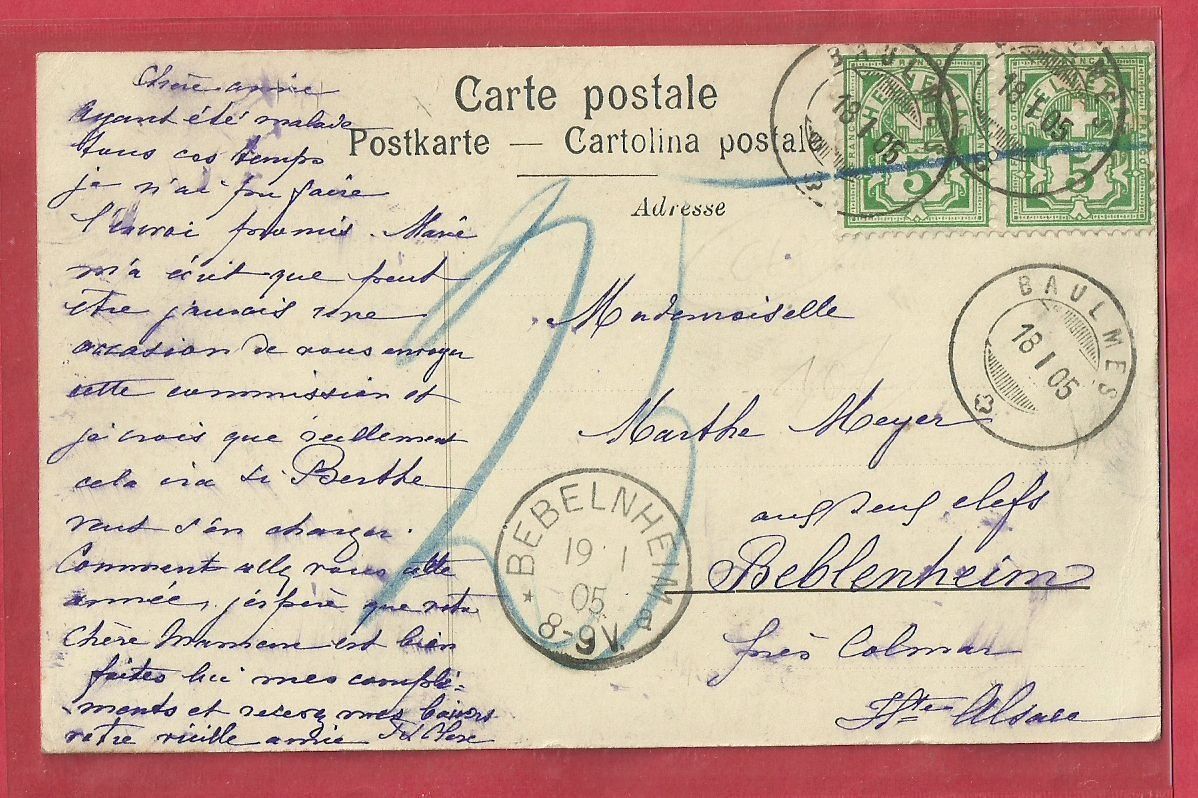 Carte postale
Postkarte — Cartolina postale
Adresse
Chère amie
Ayant été malade
tous ces temps
je n'ai pu faire
l'envoi promis. Marie
m'a écrit que peut
être j'aurais une
occasion de vous envoyer
cette commission et
je crois que réellement
cela ira si Berthe
veut s'en charger.
Comment allez vous cette
année, j'espère que votre
chère Maman est bien
faites lui mes complé-
ments et recevez mes baisers
votre vieille amie
Mademoiselle
Marthe Meyer
aux deux clefs
Beblenheim
près Colmar
Hte Alsace
BAULMES
18 I 05
BAULMES
18 I 05
BAULMES
18 I 05
5
5
BEBELNHEIM a
19 1
05
8-9V.